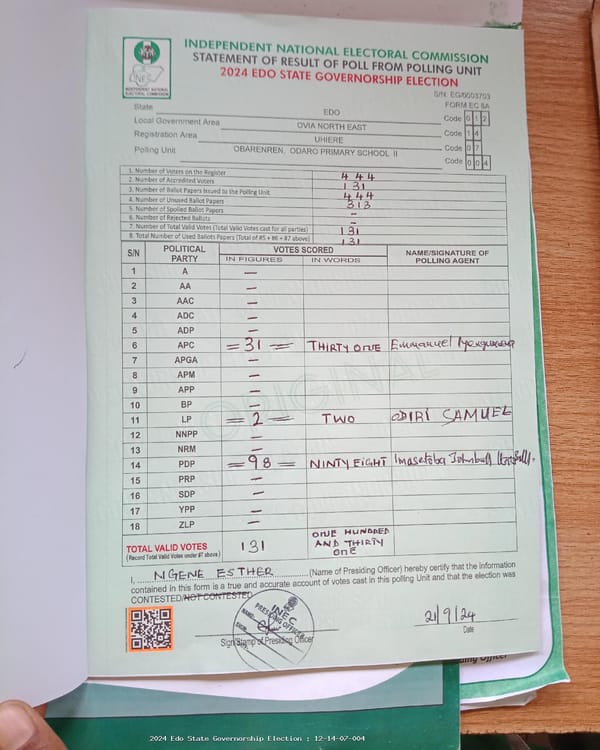 INDEPENDENT NATIONAL ELECTORAL COMMISSION
STATEMENT OF RESULT OF POLL FROM POLLING UNIT
2024 EDO STATE GOVERNORSHIP ELECTION
S/N: EG/0003703
FORM EC 8A
INEC
INDEPENDENT NATIONAL ELECTORAL COMMISSION
State EDO Code 0 1 2
Local Government Area OVIA NORTH EAST Code 1 4
Registration Area UHIERE Code 0 7
Polling Unit OBARENREN, ODARO PRIMARY SCHOOL II Code 0 0 4
1. Number of Voters on the Register 444
2. Number of Accredited Voters 131
3. Number of Ballot Papers Issued to the Polling Unit 444
4. Number of Unused Ballot Papers 313
5. Number of Spoiled Ballot Papers –
6. Number of Rejected Ballots –
7. Number of Total Valid Votes (Total Valid Votes cast for all parties) 131
8. Total Number of Used Ballots Papers (Total of #5 + #6 + #7 above) 131
S/N POLITICAL PARTY VOTES SCORED NAME/SIGNATURE OF POLLING AGENT
IN FIGURES IN WORDS
1 A —
2 AA —
3 AAC —
4 ADC —
5 ADP —
6 APC =31= THIRTY ONE Emmanuel
7 APGA —
8 APM —
9 APP —
10 BP —
11 LP =2= TWO ODIRI SAMUEL
12 NNPP —
13 NRM —
14 PDP =98= NINTY EIGHT
15 PRP —
16 SDP —
17 YPP —
18 ZLP —
ORIGINAL
TOTAL VALID VOTES 131 ONE HUNDRED AND THIRTY ONE
(Record Total Valid Votes under #7 above)
I, ...... NGENE ESTHER ...... (Name of Presiding Officer) hereby certify that the information
contained in this form is a true and accurate account of votes cast in this polling Unit and that the election was
CONTESTED/NOT CONTESTED
INEC
PRESIDING OFFICER
NAME:
SIGN:
Sign/Stamp of Presiding Officer
21/9/24
Date
ding Officer
2024 Edo State Governorship Election : 12-14-07-004